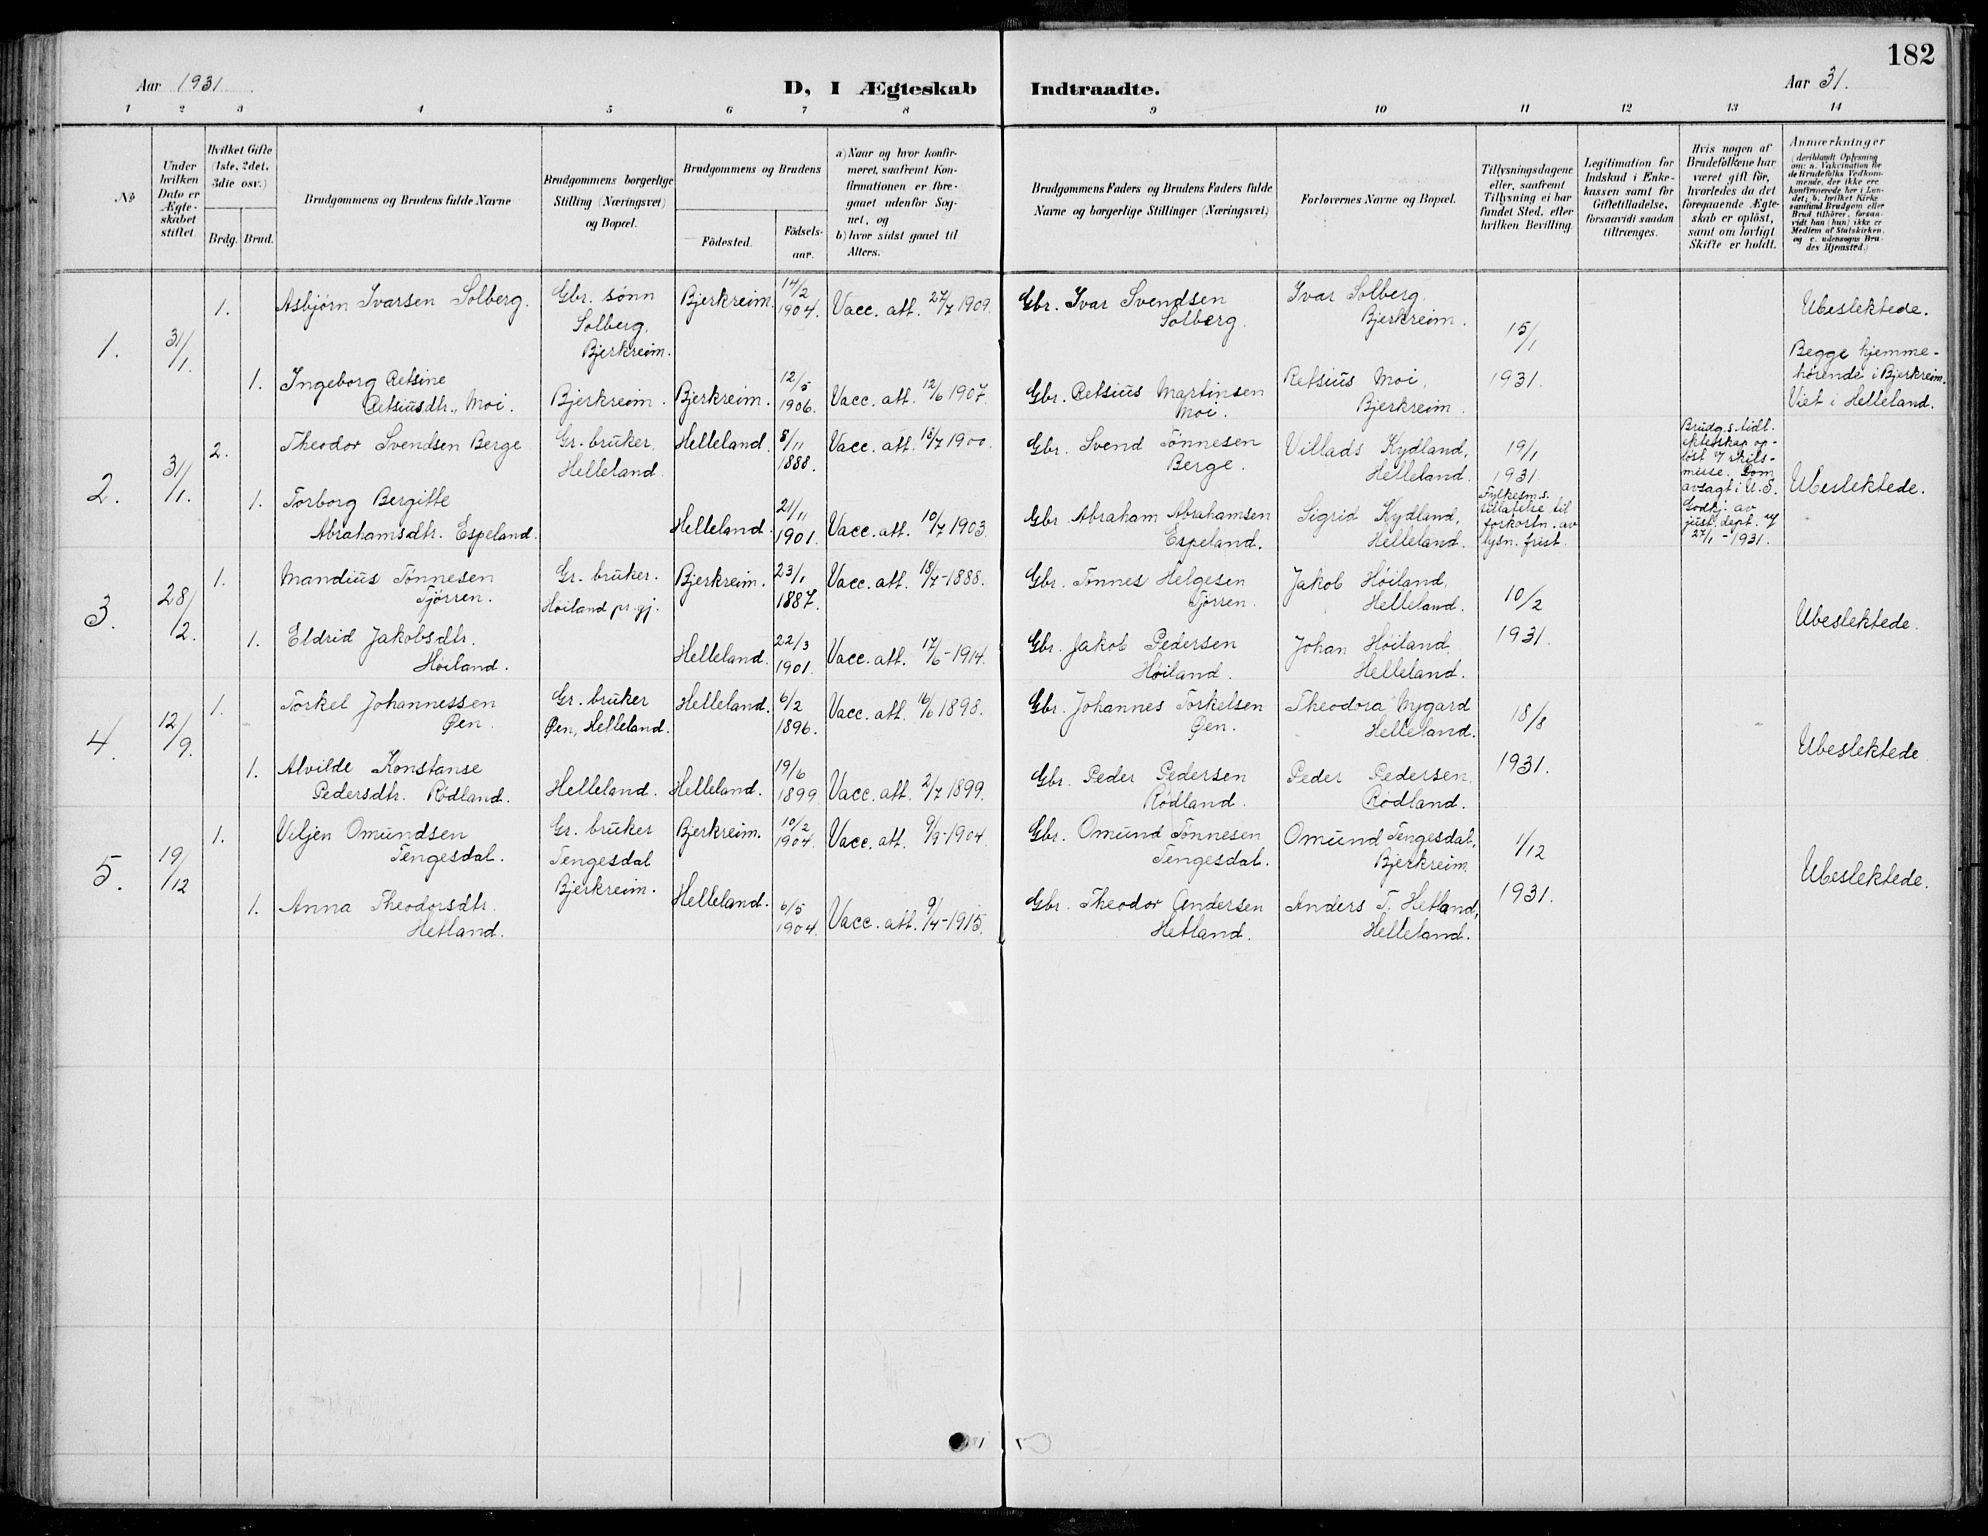 182
Aar 1931
D, I Ægteskab Indtraadte.
Aar 31.
1 2 3 4 5 6 7 8 9 10 11 12 13 14
№
Under
hvilken
Dato er
Ægte-
skabet
stiftet.
Hvilket Gifte
(1ste, 2det,
3die osv.)
Brdg. Brud.
Brudgommens og Brudens fulde Navne
Brudgommens borgerlige
Stilling (Næringsvei)
og Bopæl.
Brudgommens og Brudens
Födested.
Födsels-
aar.
a) Naar og hvor konfir-
meret, saafremt Kon-
firmationen er fore-
gaaet udenfor Sog-
net, og
b) hvor sidst gaaet til
Alters.
Brudgommens Faders og Brudens Faders fulde
Navne og borgerlige Stillinger (Næringsvei)
Forlovernes Navne og Bopæl.
Tillysningsdagene
eller, saafremt
Tillysning ei har
fundet Sted, efter
hvilken Bevilling.
Legitimation for
Indskud i Enke-
kassen samt for
Giftetilladelse,
forsaavidt saadan
tiltrænges.
Hvis nogen af
Brudefolkene har
været gift för,
hvorledes da det
foregaaende Ægte-
skab er oplöst,
samt om lovligt
Skifte er holdt.
Anmærkninger
(deriblandt Oplysning
om: a. Vakcination for
de Brudefolks Vedkom-
mende, der ikke ere
konfirmerede her i Lan-
det; b. hvilket Kirke
samfund Brudgom eller
Brud tilhörer, forsaa-
vidt han (hun) ikke er
Medlem af Statskirken,
og c. udensogns Bru-
des Hjemsted.)
1.
31/1.
1.
Asbjørn Ivarsen Solberg.
Gbr. sønn
Solberg,
Bjerkreim.
Bjerkreim.
14/2
1904.
Vacc. att. 27/7 1909.
Gbr. Ivar Svendsen
Solberg.
Ivar Solberg,
Bjerkreim.
15/1
1931.
Ubeslektede.
Begge hjemme-
hørende i Bjerkreim.
Viet i Helleland.
1.
Ingeborg Retsine
Retsiusdtr. Moi.
Bjerkreim.
Bjerkreim.
12/5
1906.
Vacc. att. 12/6 1907.
Gbr. Retsius Martinsen
Moi.
Retsius Moi,
Bjerkreim.
2.
31/1.
2.
Theodor Svendsen Berge
Gr. bruker,
Helleland.
Helleland.
8/11
1888.
Vacc. att. 18/7 1900.
Gbr. Svend Tønnesen
Berge.
Villads Kydland,
Helleland.
19/1
1931
Fylkesm.s.
tillatelse til
forkortn. av
lysn. frist.
Brudg.s tidl.
ekteskap op-
løst v/ skils-
misse. Dom
avsagt i U.S.
Godkj. av
just. dept. 4/
27/1 - 1931.
Ubeslektede.
1.
Torborg Bergitte
Abrahamsdtr. Espeland.
Helleland.
21/11
1901.
Vacc. att. 10/7 1903.
Gbr Abraham Abrahamsen
Espeland.
Sigrid Kydland,
Helleland.
3.
28/2.
1.
Mandius Tønnesen
Tjørren.
Gr. bruker.
Høiland pr. gj.
Bjerkreim.
23/1
1887.
Vacc. att. 18/7-1888.
Gbr. Tønnes Helgesen
Tjørren.
Jakob Høiland,
Helleland.
10/2
1931.
Ubeslektede.
1.
Eldrid Jakobsdtr.
Høiland.
Helleland.
22/3
1901.
Vacc. att. 17/6-1914.
Gbr. Jakob Pedersen
Høiland.
Johan Høiland,
Helleland.
4.
12/9.
1.
Torkel Johannessen
Øen.
Gr. bruker
Øen, Helleland.
Helleland.
6/2
1896.
Vacc. att. 16/6 1898.
Gbr. Johannes Torkelsen
Øen.
Theodora Nygard
Helleland.
18/8
1931.
Ubeslektede
1.
Alvilde Konstanse
Pedersdtr. Rødland.
Helleland.
Helleland.
19/6
1899
Vacc. att. 2/7 1899.
Gbr. Peder Pedersen
Rødland.
Peder Pedersen,
Rødland.
5.
19/12
1.
Viljen Omundsen
Tengesdal.
Gr. bruker
Tengesdal
Bjerkreim.
Bjerkreim.
10/2
1904.
Vacc. att. 9/9-1904.
Gbr. Omund Tønnesen
Tengesdal.
Omund Tengesdal,
Bjerkreim.
1/12
1931.
Ubeslektede.
1.
Anna Theodorsdtr.
Hetland.
Helleland.
6/5
1904.
Vacc. att. 9/4-1915.
Gbr. Theodor Andersen
Hetland.
Anders T. Hetland,
Helleland.